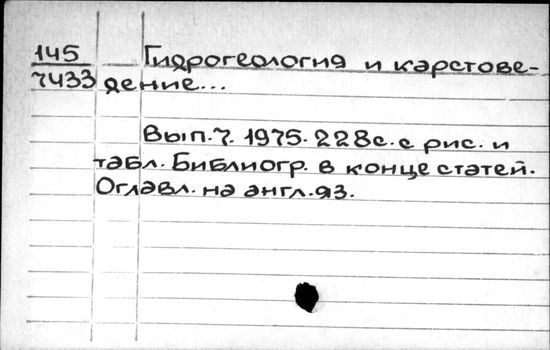 145 Гидрогеология и карстове-
7433 дение...
Вып.7. 1975. 228с. с рис. и
табл. Библиогр. в конце статей.
Оглавл. на англ.яз.